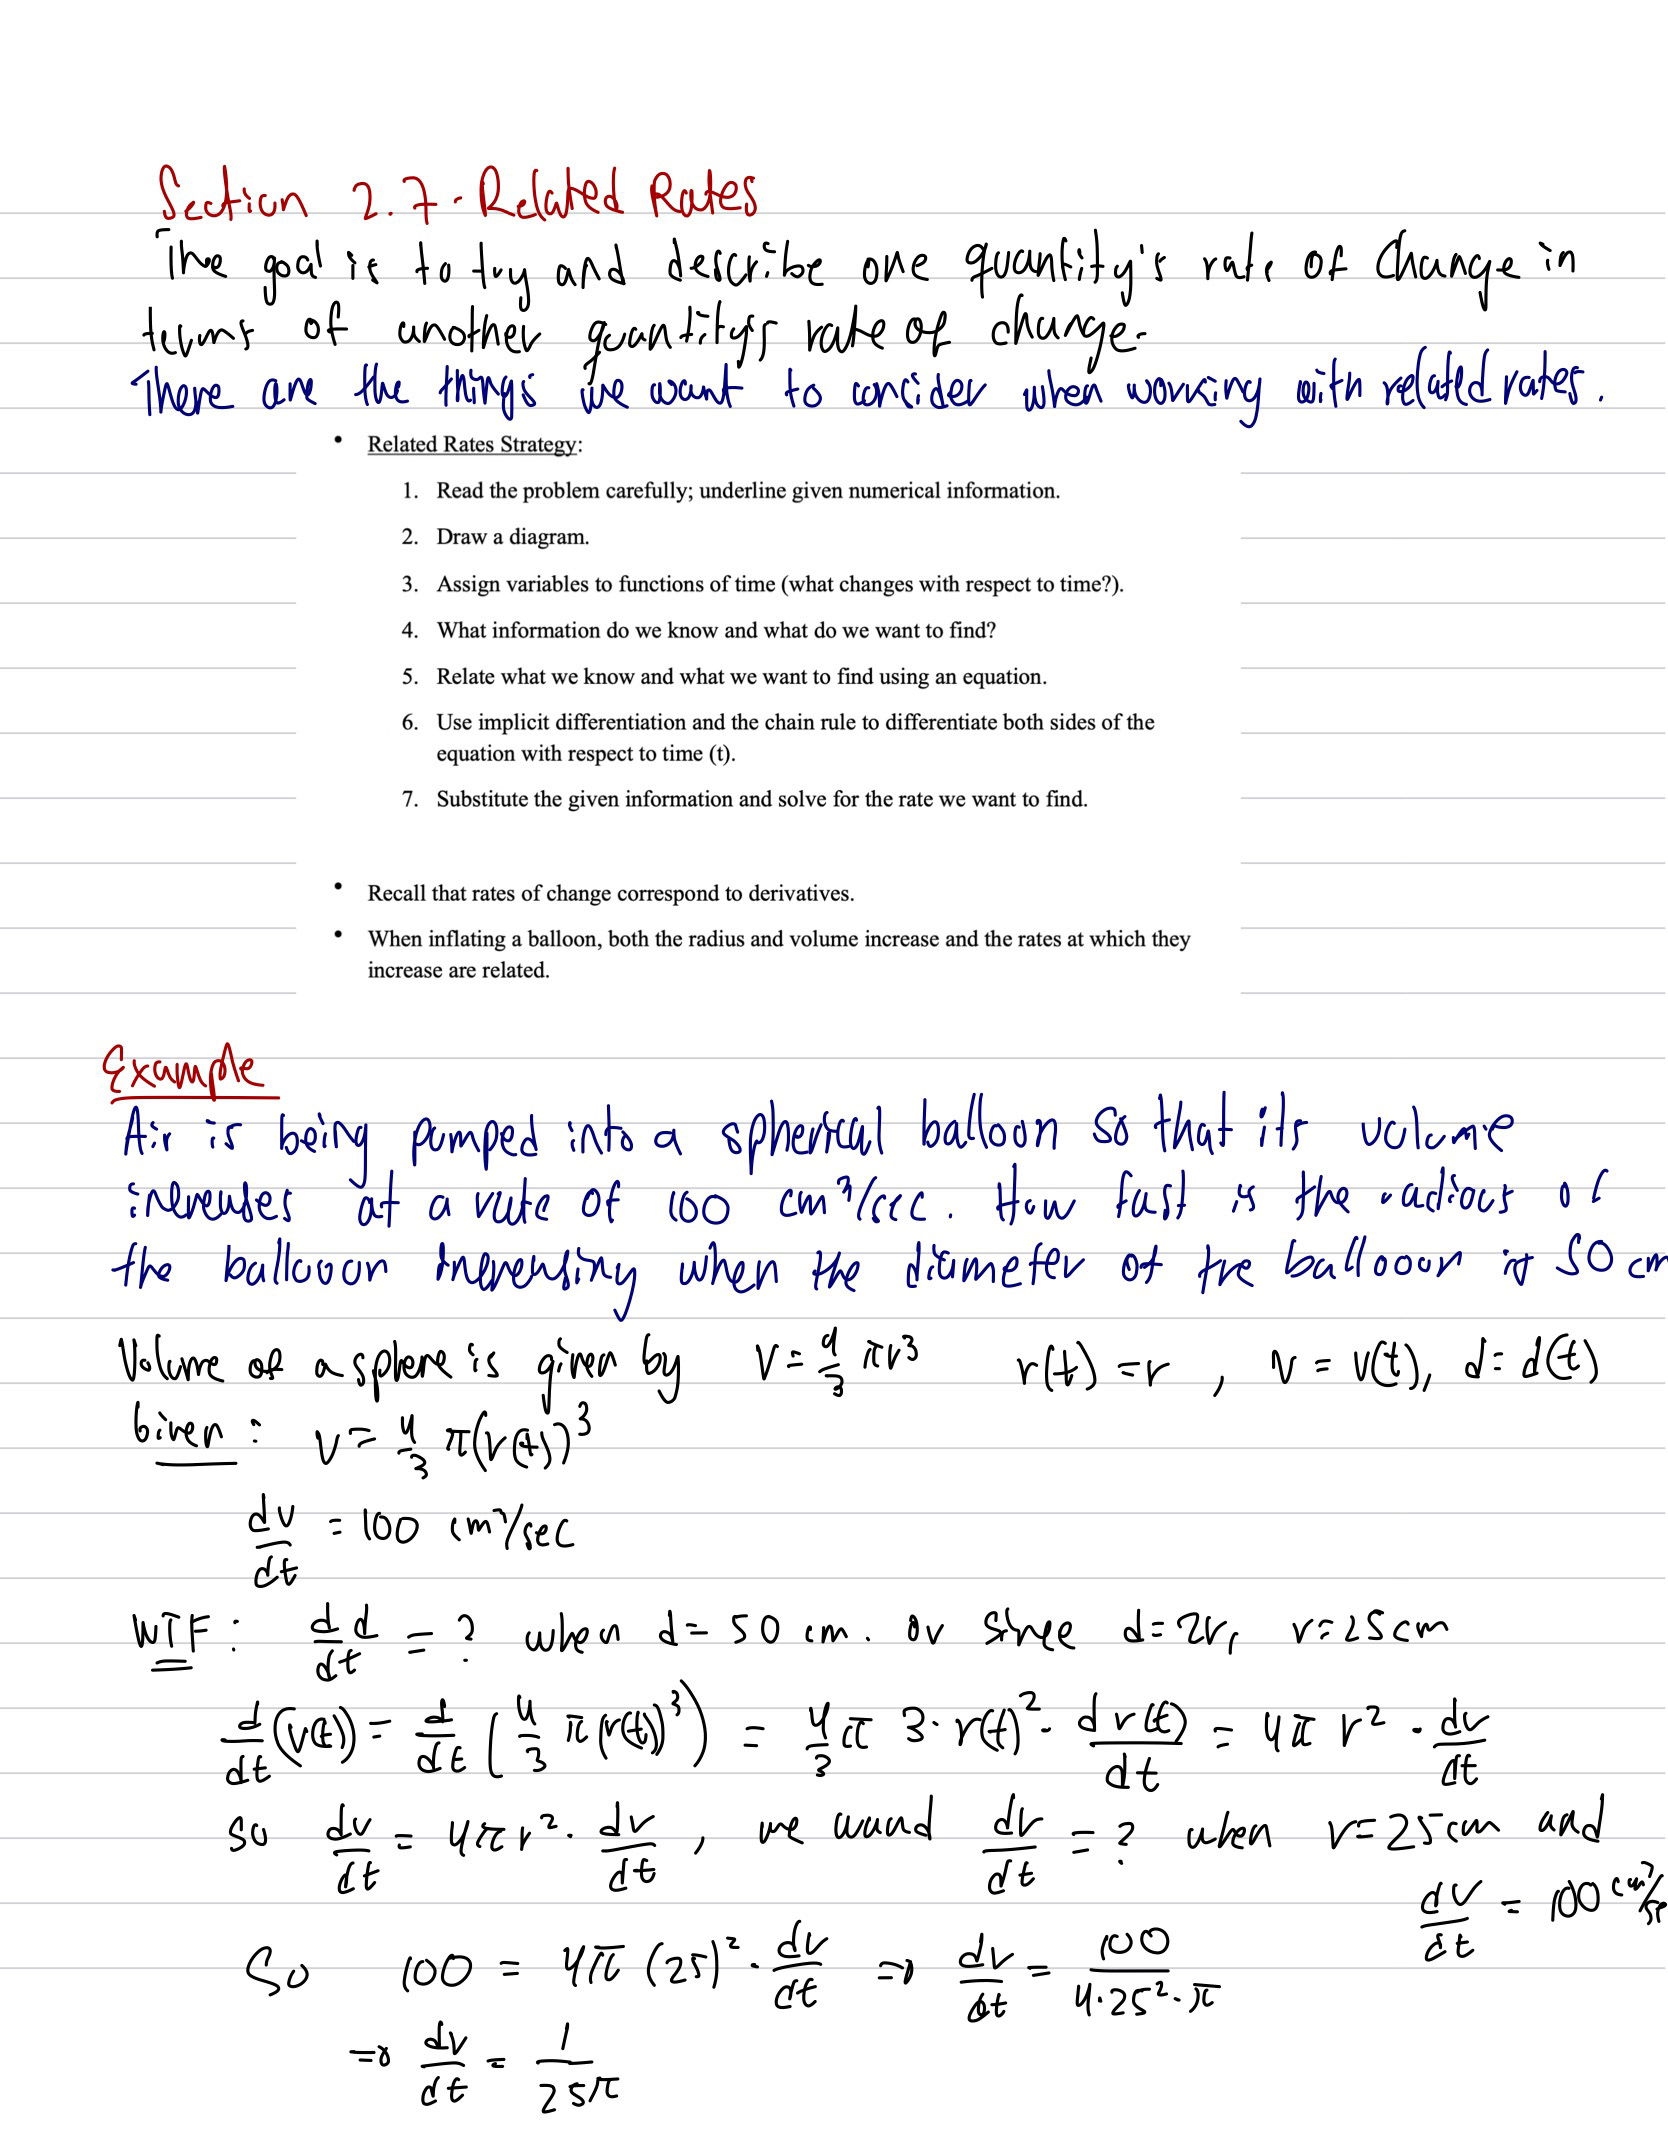 Section 2.7 - Related Rates
The goal is to try and describe one quantity's rate of change in
terms of another quantity's rate of change.
There are the things we want to consider when working with related rates.
• Related Rates Strategy:
1. Read the problem carefully; underline given numerical information.
2. Draw a diagram.
3. Assign variables to functions of time (what changes with respect to time?).
4. What information do we know and what do we want to find?
5. Relate what we know and what we want to find using an equation.
6. Use implicit differentiation and the chain rule to differentiate both sides of the
equation with respect to time (t).
7. Substitute the given information and solve for the rate we want to find.
• Recall that rates of change correspond to derivatives.
• When inflating a balloon, both the radius and volume increase and the rates at which they
increase are related.
Example
Air is being pumped into a spherical balloon so that its volume
increases at a rate of 100 cm³/sec. How fast is the radious of
the ballooon increasing when the diameter of the ballooon is 50 cm
Volume of a sphere is given by V = 4/3 πr³ r(t) = r , V = V(t), d = d(t)
Given: V = 4/3 π(r(t))³
dv/dt = 100 cm³/sec
WTF: dd/dt = ? when d = 50 cm. or since d = 2r, r = 25 cm
d/dt (V(t)) = d/dt (4/3 π (r(t))³) = 4/3 π 3·r(t)² · dr(t)/dt = 4π r² · dr/dt
So dv/dt = 4πr² · dr/dt , we wand dr/dt = ? when r = 25 cm and
dv/dt = 100 cm³/se
So 100 = 4π (25)² · dr/dt ⇒ dr/dt = 100/4·25²·π
⇒ dr/dt = 1/25π